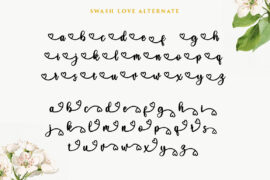 SWASH LOVE ALTERNATE
a b c d e f g h
i j k l m n o p q
r s t u v w x y z
a b c d e f g h i
j k l m n o p q r s
t u v w x y z